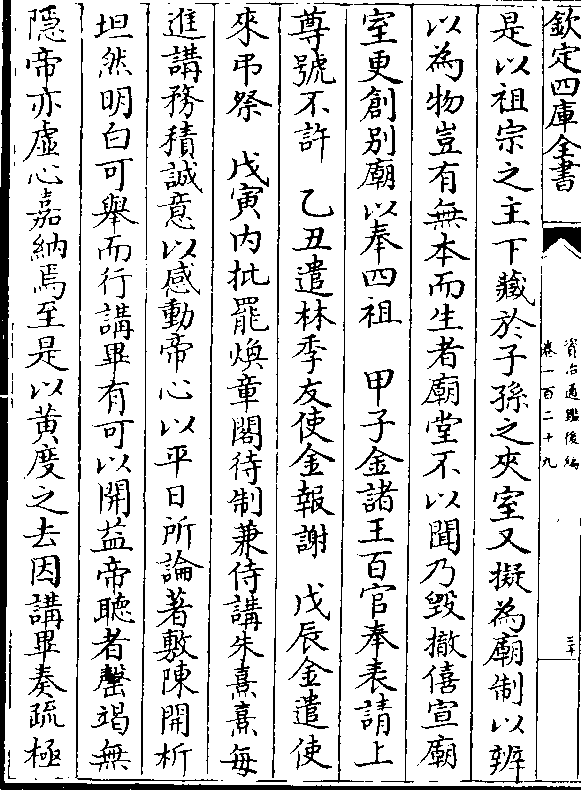 欽定四庫全書
資治通鑑後編
卷一百二十九
三十
是以祖宗之主下藏於子孫之夾室又擬為廟制以辨
以為物豈有無本而生者廟堂不以聞乃毀撤僖宣廟
室更創別廟以奉四祖　甲子金諸王百官奉表請上
尊號不許　乙丑遣林季友使金報謝　戊辰金遣使
來弔祭　戊寅内批罷煥章閣待制兼侍講朱熹熹每
進講務積誠意以感動帝心以平日所論著敷陳開析
坦然明白可舉而行講畢有可以開益帝聽者罄竭無
隱帝亦虛心嘉納焉至是以黃度之去因講畢奏疏極